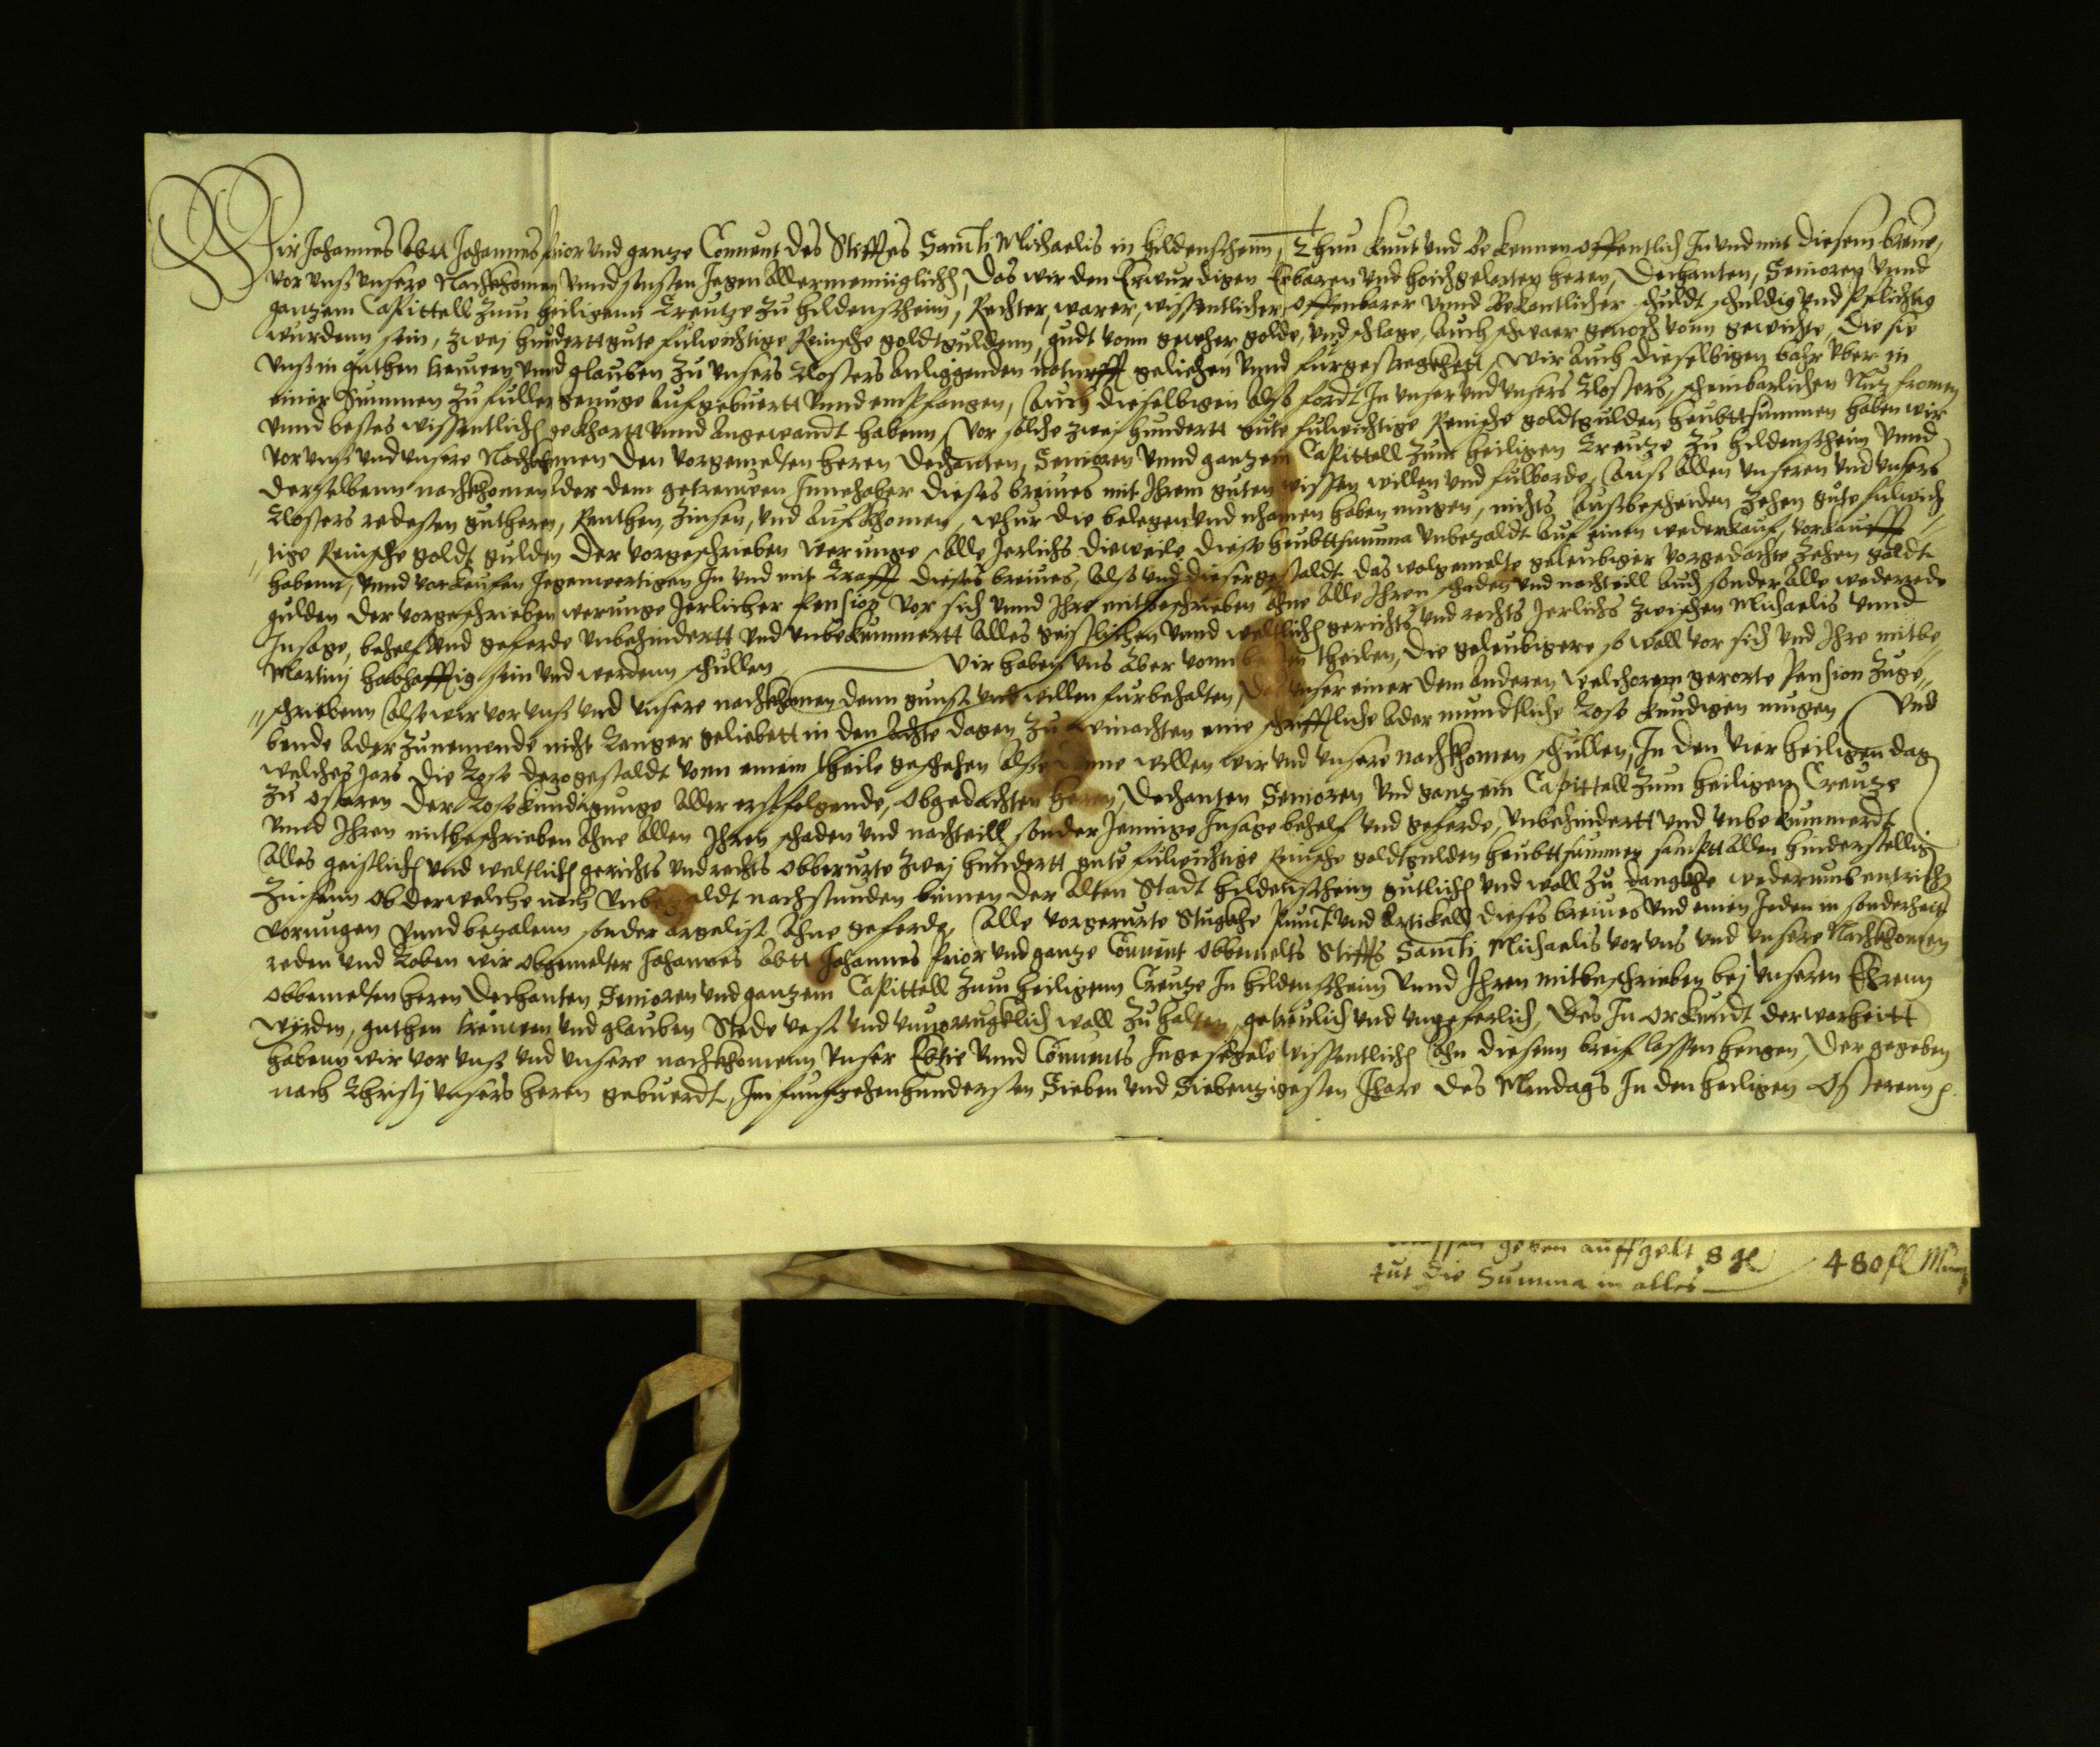 Wir Johannes Abtt Johannes Prior vnd gantze Conuent des Stifftes Sancti Michaelis in Hildenscheim, Thun kunt vnd Bekennen offentlich In vnd mit diesem breue,
vor vnß vnsere Nachkhomen vnnd sunsten Jegen Allermenniglichen, Das wir den Erwurdigen Erbaren vnd hochgelarten heren, Dechanten, Senioren vnnd
gantzem Capittell Zum heiligenn Creutze zu Hildenscheim, Rechter, warer, wissentlicher offenbarer vnnd Bekantlicher schuldt schuldig vnd Pflichtig
wurdenn sein, zwej hundertt gute fulwichtige Reinsche goldtguldenn, gudt vonn golde, vnd schlage, Auch schwaer genoch vonn gewichte, Die sie
vnß in guthen treuwen vnnd glauben zu vnsers Closters anliggenden noturfft geliehen vnnd furgestregkett, Wir Auch dieselbigen bahr vber in
einer Summen zu fuller genuge Aufgebuertt vnnd entpfangen, Auch dieselbigen Alß fordt In vnser vnd vnsers Closters, scheinbarlichen Nutz fromen
vnnd bestes wissentlich gekhartt vnnd Angewandt habenn, Vor solche zwej hundertt gute fulwichtige Reinsche goldtgulden heubttsummen haben wir
vor vnß vnd vnsere Nachkhomen den vorgemelten heren Dechanten, Senioren vnnd gantzem Capittell Zum heiligen Creutze zu Hildenscheim vnnd
derselbenn nachkhomen Ader dem getreuwen Innehaber dieses breiues mit Ihrem guten wissen willen vnd fulborde, Auß Allen vnseren vnd vnsers
Closters redesten gutheren, Renthen, Zinsen, vnd Aufkhomen, whur die belegen vnd nhamen haben mugen, nichts Außbescheiden Zehen gute fulwich„
„tige Reinsche goldt gulden der vorgeschrieben werunge Alle Jerlichs dieweile diese heubttsumma vnbezaldt Auf einen wederkauf, vorkaufft
habenn, vnnd vorkaufen Jegenwertigen In vnd mit Krafft dieses breiues, Alß vnd dieser gestaldt das wolgemelte geleubiger vorgedachte Zehen goldt
gulden der vorgeschrieben werunge Jerlicher Pension vor sich vnnd Ihre mitbeschrieben Ahne Alle Ihren schaden vnd nachteill Auch sonder Alle wederrede
Insage, behelf vnd geferde vnbehindertt vnd vnbekummertt Alles geistlichen vnnd weltlichen gerichts vnd rechts Jerlichs zwischen Michaelis vnnd
Martinj habhafftig sein vnd werdenn schullen Wir haben vns Aber vonn theilen, Die geleubigere so woll vor sich vnd Ihre mitbe„
„schriebenn Alß wir vor vnß vnd vnsere nachkhomen denn gunst vnd willen furbehalten, vnser einer dem Anderen Welchorem gerorte Pension Zuge„
bende Ader Zunemende nicht Lenger geliebett in den Achte dagen zu winachten eine schrifftliche Ader mundtliche Lose kundigen mugen, Vnd
welches Jars die Lose dero gestaldt vonn einem theile geschehen willen wir vnd vnsere nachkhomen schullen, In den vier heiligen dag
zu Osteren der Losekundigunge Aller erstfolgende, Obgedachten heren, Dechanten Senioren vnd gantzem Capittell Zum heiligen Creutze
vnnd Ihren mitbeschrieben Ahne Allen Ihren schaden vnd nachteill sonder Jennige Insage behelf vnd geferde, vnbehindertt vnd vnbekummerdt
Alles geistlich vnd weltlich gerichts vnd rechts obberurte zwej hundertt gute fulwichtige Reinsche goldtgulden heubttsummen samptt Allen hinderstellig
Zinsenn Ob derwelche noch vnbezaldt nachstunden binnen der Alten Stadt Hildenscheim gutlich vnd woll zu dangkhe wederumb entrich
vornugen vnnd bezalenn sonder Argelist Ahne geferde, Alle vorgerurte Stugkhe Punct vnd Artikell dieses breiues vnd einen Jeden in sonderheitt
reden vnd Loben wir obgemelter Johannes Abtt Johannes Prior vnd gantze Conuent obbemelts Stiffts Sancti Michaelis vor vns vnd vnsere Nachkhomen
obbemelten heren Dechanten, Senioren vnd gantzem Capittell Zum heiligenn Creutze In Hildenscheim vnnd Ihren mitbeschrieben bej vnseren Ehrenn
wirden, guthen treuwen vnd glauben Stede vest vnd vnuorrugklich woll zu halten, getreulich vnd vngeferlich, Des In Orkundt der warheitt
habenn wir vor vnß vnd vnsere nachkhomenn vnser Ebtie vnnd Conuents Ingesegele wissentlich Ahn diesenn breif lassen hengen, Der gegeben
nach Christj vnsers heren gebuerdt, Im funfzehenhundersten Sieben vnd Siebentzigesten Ihare des Mondags In den heiligen Osterenn
geben auffgelt 8 gl
tut die Summa in alles 480 fl Muntz